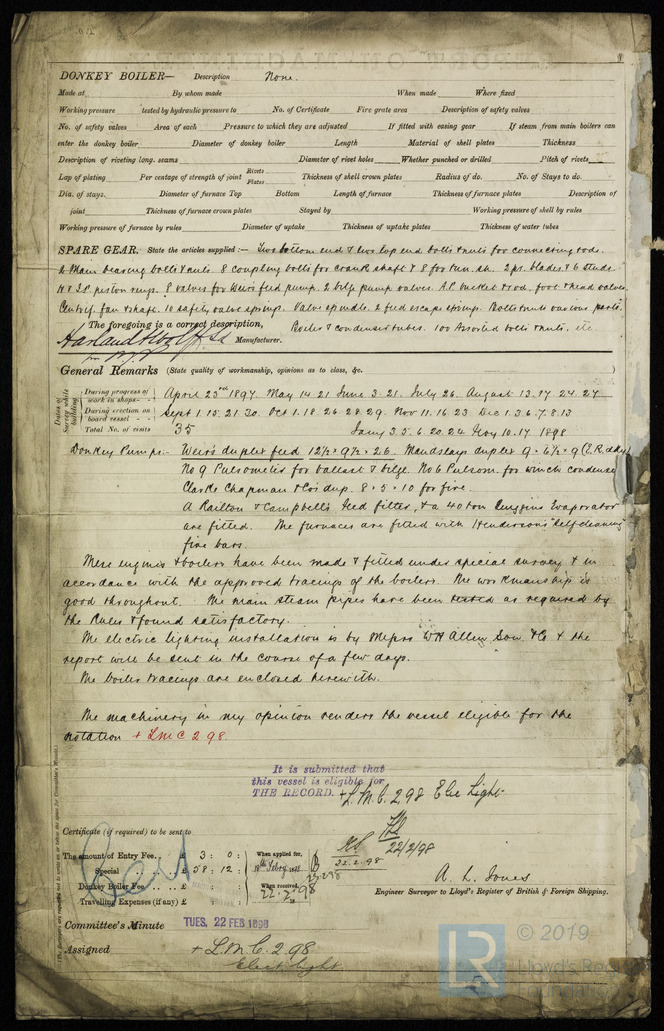 DONKEY BOILER— Description None.
Made at By whom made When made Where fixed
Working pressure tested by hydraulic pressure to No. of Certificate Fire grate area Description of safety valves
No. of safety valves Area of each Pressure to which they are adjusted If fitted with easing gear If steam from main boilers can
enter the donkey boiler Diameter of donkey boiler Length Material of shell plates Thickness
Description of riveting long. seams Diameter of rivet holes Whether punched or drilled Pitch of rivets
Lap of plating Per centage of strength of joint Rivets Plates Thickness of shell crown plates Radius of do. No. of Stays to do.
Dia. of stays. Diameter of furnace Top Bottom Length of furnace Thickness of furnace plates Description of
joint Thickness of furnace crown plates Stayed by Working pressure of shell by rules
Working pressure of furnace by rules Diameter of uptake Thickness of uptake plates Thickness of water tubes
SPARE GEAR. State the articles supplied :— Two bottom end & two top end bolts & nuts for connecting rods.
2 Main bearing bolts & nuts. 8 coupling bolts for crank shaft & 8 for tun. sh. 2 pr. blades & 6 studs
H & I.P. piston rings. 8 valves for Weirs feed pump. 2 bilge pump valves. A.P. bucket & rod, foot & head valves.
Centrif. fan & shaft. 10 safety valve springs. Valve spindle. 2 feed escape springs. Bolts & nuts various parts.
The foregoing is a correct description, Boiler & condenser tubes. 100 Assorted bolts & nuts, etc.
Harland & Wolff Ld Manufacturer.
General Remarks (State quality of workmanship, opinions as to class, &c.
Dates of Survey while building
During progress of work in shops— April 23rd 1897. May 14 21 June 3. 21. July 26. August 13. 17. 24. 27
During erection on board vessel— Sept 1. 15. 21. 30. Oct 1. 18. 26. 28. 29. Nov 11. 16. 23 Dec 1. 3. 6. 7. 8. 13
Total No. of visits 35 Jany 3. 5. 6. 20. 24 Feby 10. 17 1898
Donkey Pumps:- Weir's duplex feed 12½ × 9½ × 26. Maudslays duplex 9 × 6½ × 9
No 9 Pulsometer for ballast & bilge. No 6 Pulsom. for winch condenser
Clarke Chapman & Co's dup. 8 × 5 × 10 for fire.
A Railton & Campbell's feed filter, & a 40 ton Quiggins Evaporator
are fitted. The furnaces are fitted with Henderson's "self cleaning"
fire bars.
These engines & boilers have been made & fitted under special survey & in
accordance with the approved tracings of the boilers. The workmanship is
good throughout. The main steam pipes have been tested as required by
the Rules & found satisfactory.
The electric lighting installation is by Messrs WH Allen, Son & Co & the
report will be sent in the course of a few days.
The boiler tracings are enclosed herewith.
The machinery in my opinion renders the vessel eligible for the
notation + LMC 2 98.
It is submitted that
this vessel is eligible for
THE RECORD. + L.M.C. 2.98 Elec Light
22/2/98
22.2.98
Certificate (if required) to be sent to
The amount of Entry Fee.. £ 3 : 0 : When applied for,
Special £ 58 : 12 :
Donkey Boiler Fee £ : : When received,
Travelling Expenses (if any) £ : : 22.2.98
A. L. Jones
Engineer Surveyor to Lloyd's Register of British & Foreign Shipping.
Committee's Minute TUES. 22 FEB 1898
Assigned + L.M.C. 2.98
Elect. light
LR © 2019
Lloyd's Register
Foundation